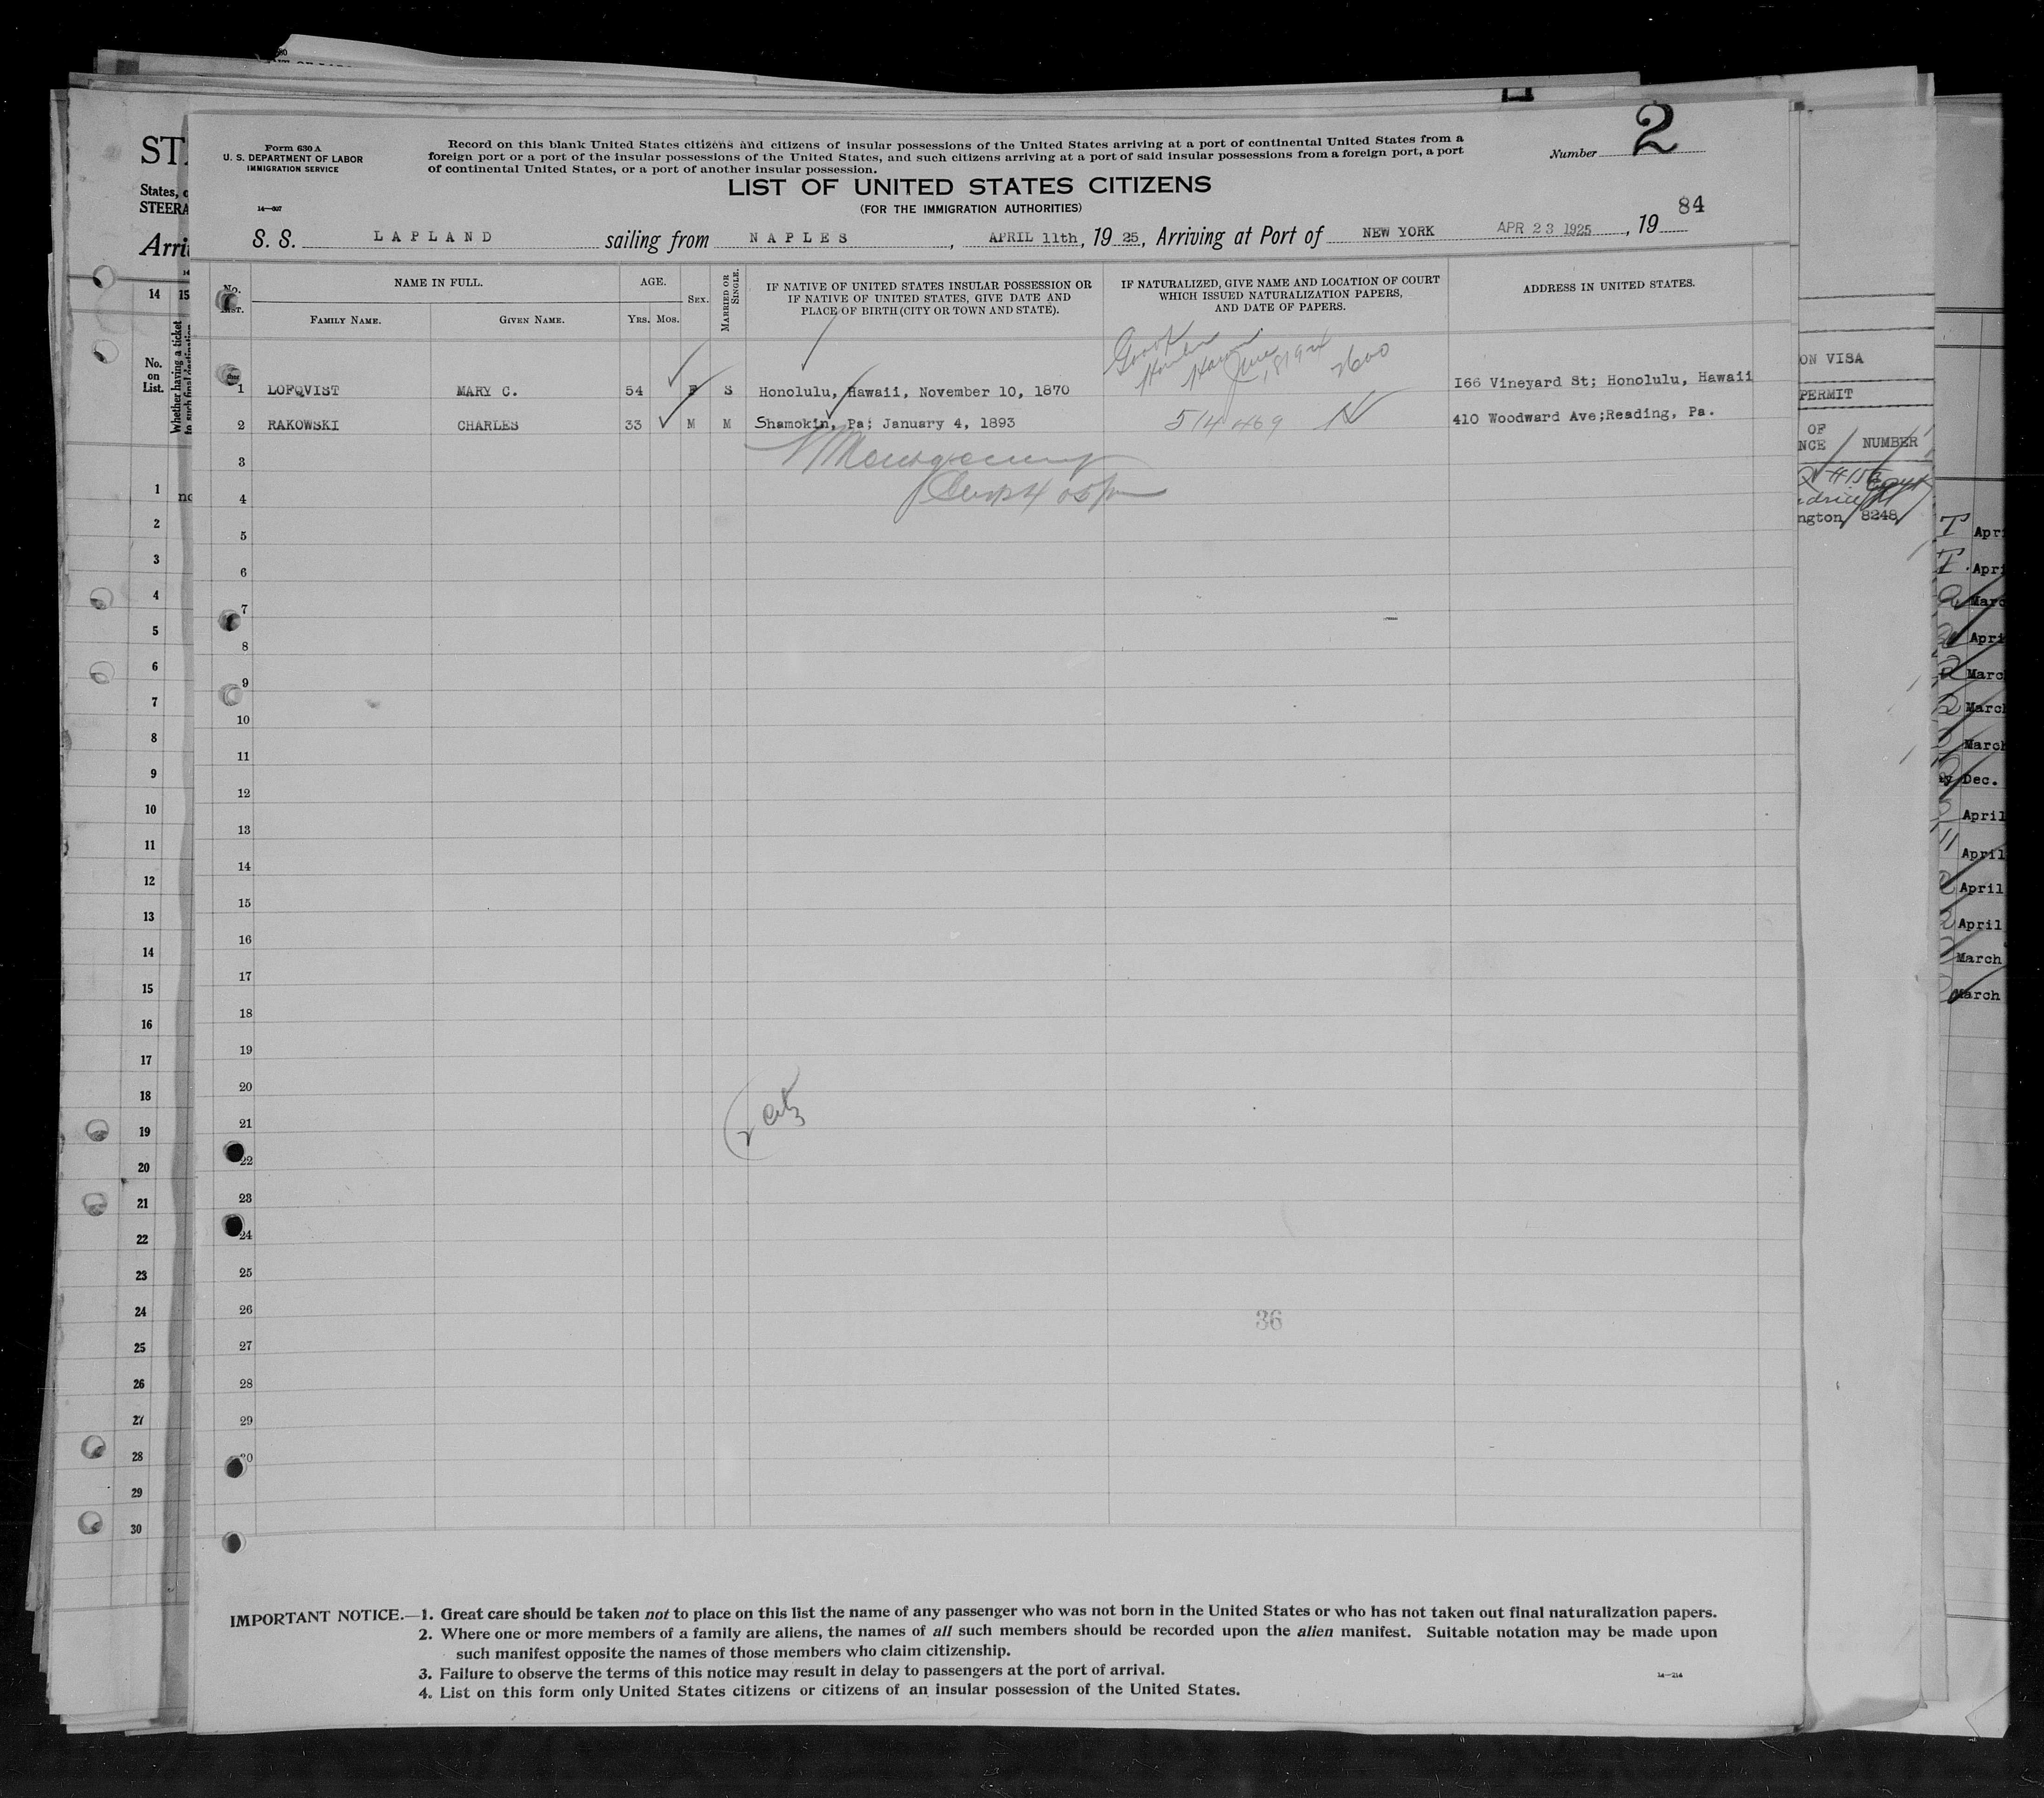 Form 630 A
U. S. DEPARTMENT OF LABOR
IMMIGRATION SERVICE
14—607
Record on this blank United States citizens and citizens of insular possessions of the United States arriving at a port of continental United States from a
foreign port or a port of the insular possessions of the United States, and such citizens arriving at a port of said insular possessions from a foreign port, a port
of continental United States, or a port of another insular possession.
Number 2
LIST OF UNITED STATES CITIZENS
(FOR THE IMMIGRATION AUTHORITIES)
84
S. S. LAPLAND sailing from NAPLES, APRIL 11th, 1925, Arriving at Port of NEW YORK APR 23 1925, 19
No. LIST. NAME IN FULL. AGE. SEX. MARRIED OR SINGLE. IF NATIVE OF UNITED STATES INSULAR POSSESSION OR IF NATIVE OF UNITED STATES, GIVE DATE AND PLACE OF BIRTH (CITY OR TOWN AND STATE). IF NATURALIZED, GIVE NAME AND LOCATION OF COURT WHICH ISSUED NATURALIZATION PAPERS, AND DATE OF PAPERS. ADDRESS IN UNITED STATES.
FAMILY NAME. GIVEN NAME. YRS. MOS.
2600
1 LOFQVIST MARY C. 54 F S Honolulu, Hawaii, November 10, 1870 166 Vineyard St; Honolulu, Hawaii
2 RAKOWSKI CHARLES 33 M M Shamokin, Pa; January 4, 1893 514469 N 410 Woodward Ave;Reading, Pa.
3
4
5
6
7
8
9
10
11
12
13
14
15
16
17
18
19
20
21
22
23
24
25
26
27
28
29
30
2 citz
36
IMPORTANT NOTICE.—1. Great care should be taken not to place on this list the name of any passenger who was not born in the United States or who has not taken out final naturalization papers.
2. Where one or more members of a family are aliens, the names of all such members should be recorded upon the alien manifest. Suitable notation may be made upon
such manifest opposite the names of those members who claim citizenship.
3. Failure to observe the terms of this notice may result in delay to passengers at the port of arrival.
4. List on this form only United States citizens or citizens of an insular possession of the United States.
14—214
States,
STEERA
Arri
14 15
No.
on
List.
Whether having a ticket
1
2
3
4
5
6
7
8
9
10
11
12
13
14
15
16
17
18
19
20
21
22
23
24
25
26
27
28
29
30
ON VISA
PERMIT
OF
NCE NUMBER
ngton 8248
Apri
Apri
Marc
Apri
Marc
March
March
Dec.
April
April
April
April
March
March